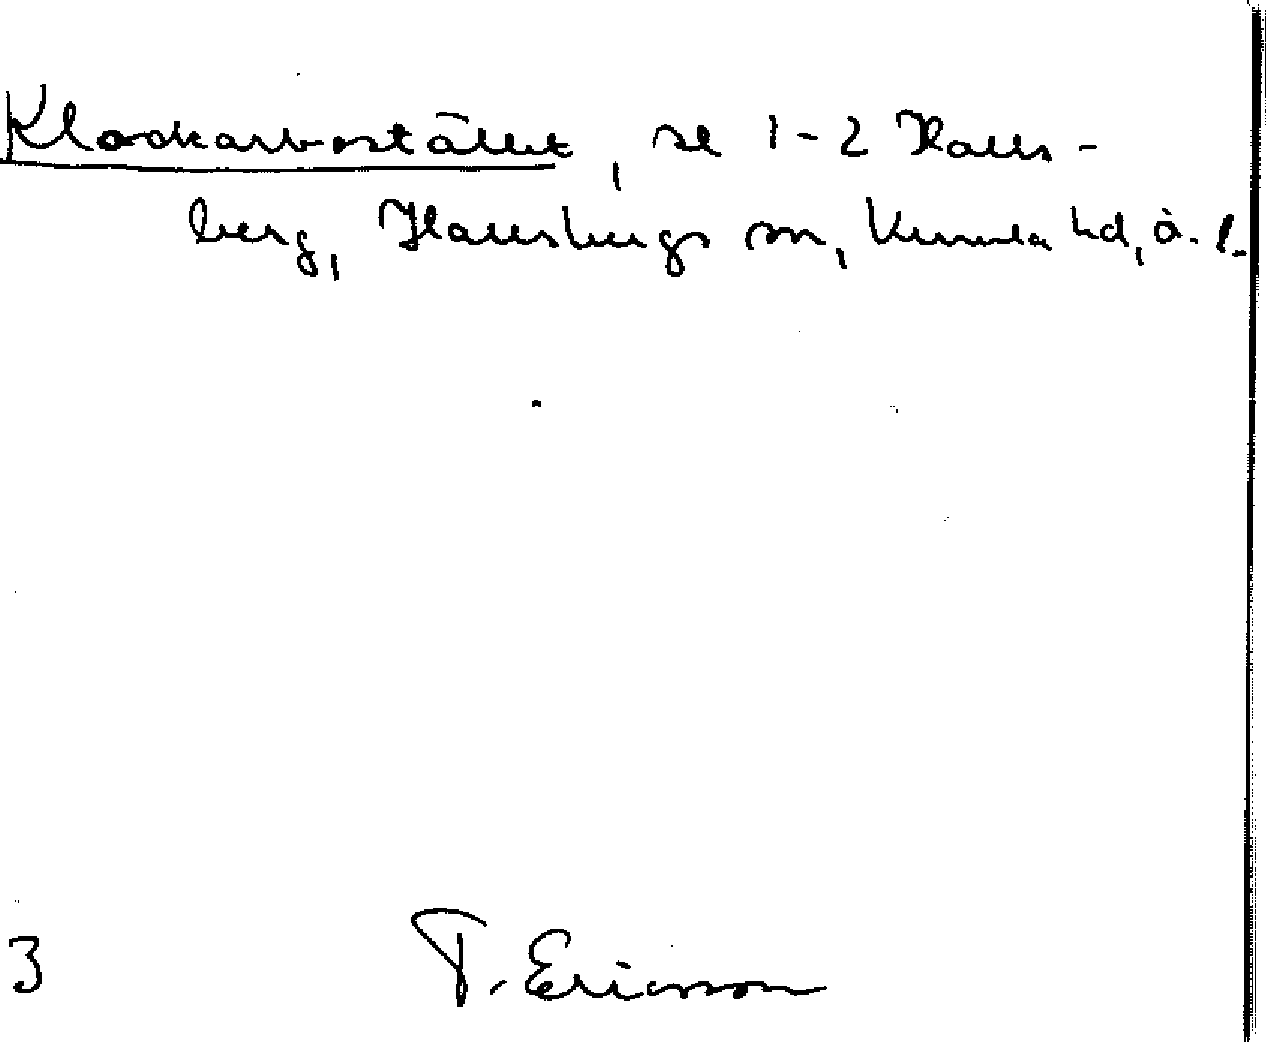 Klockarbostället, se 1-2 Halls-
berg, Hallsbergs sn, Kumla hd, ä. l.
3 T. Ericsson